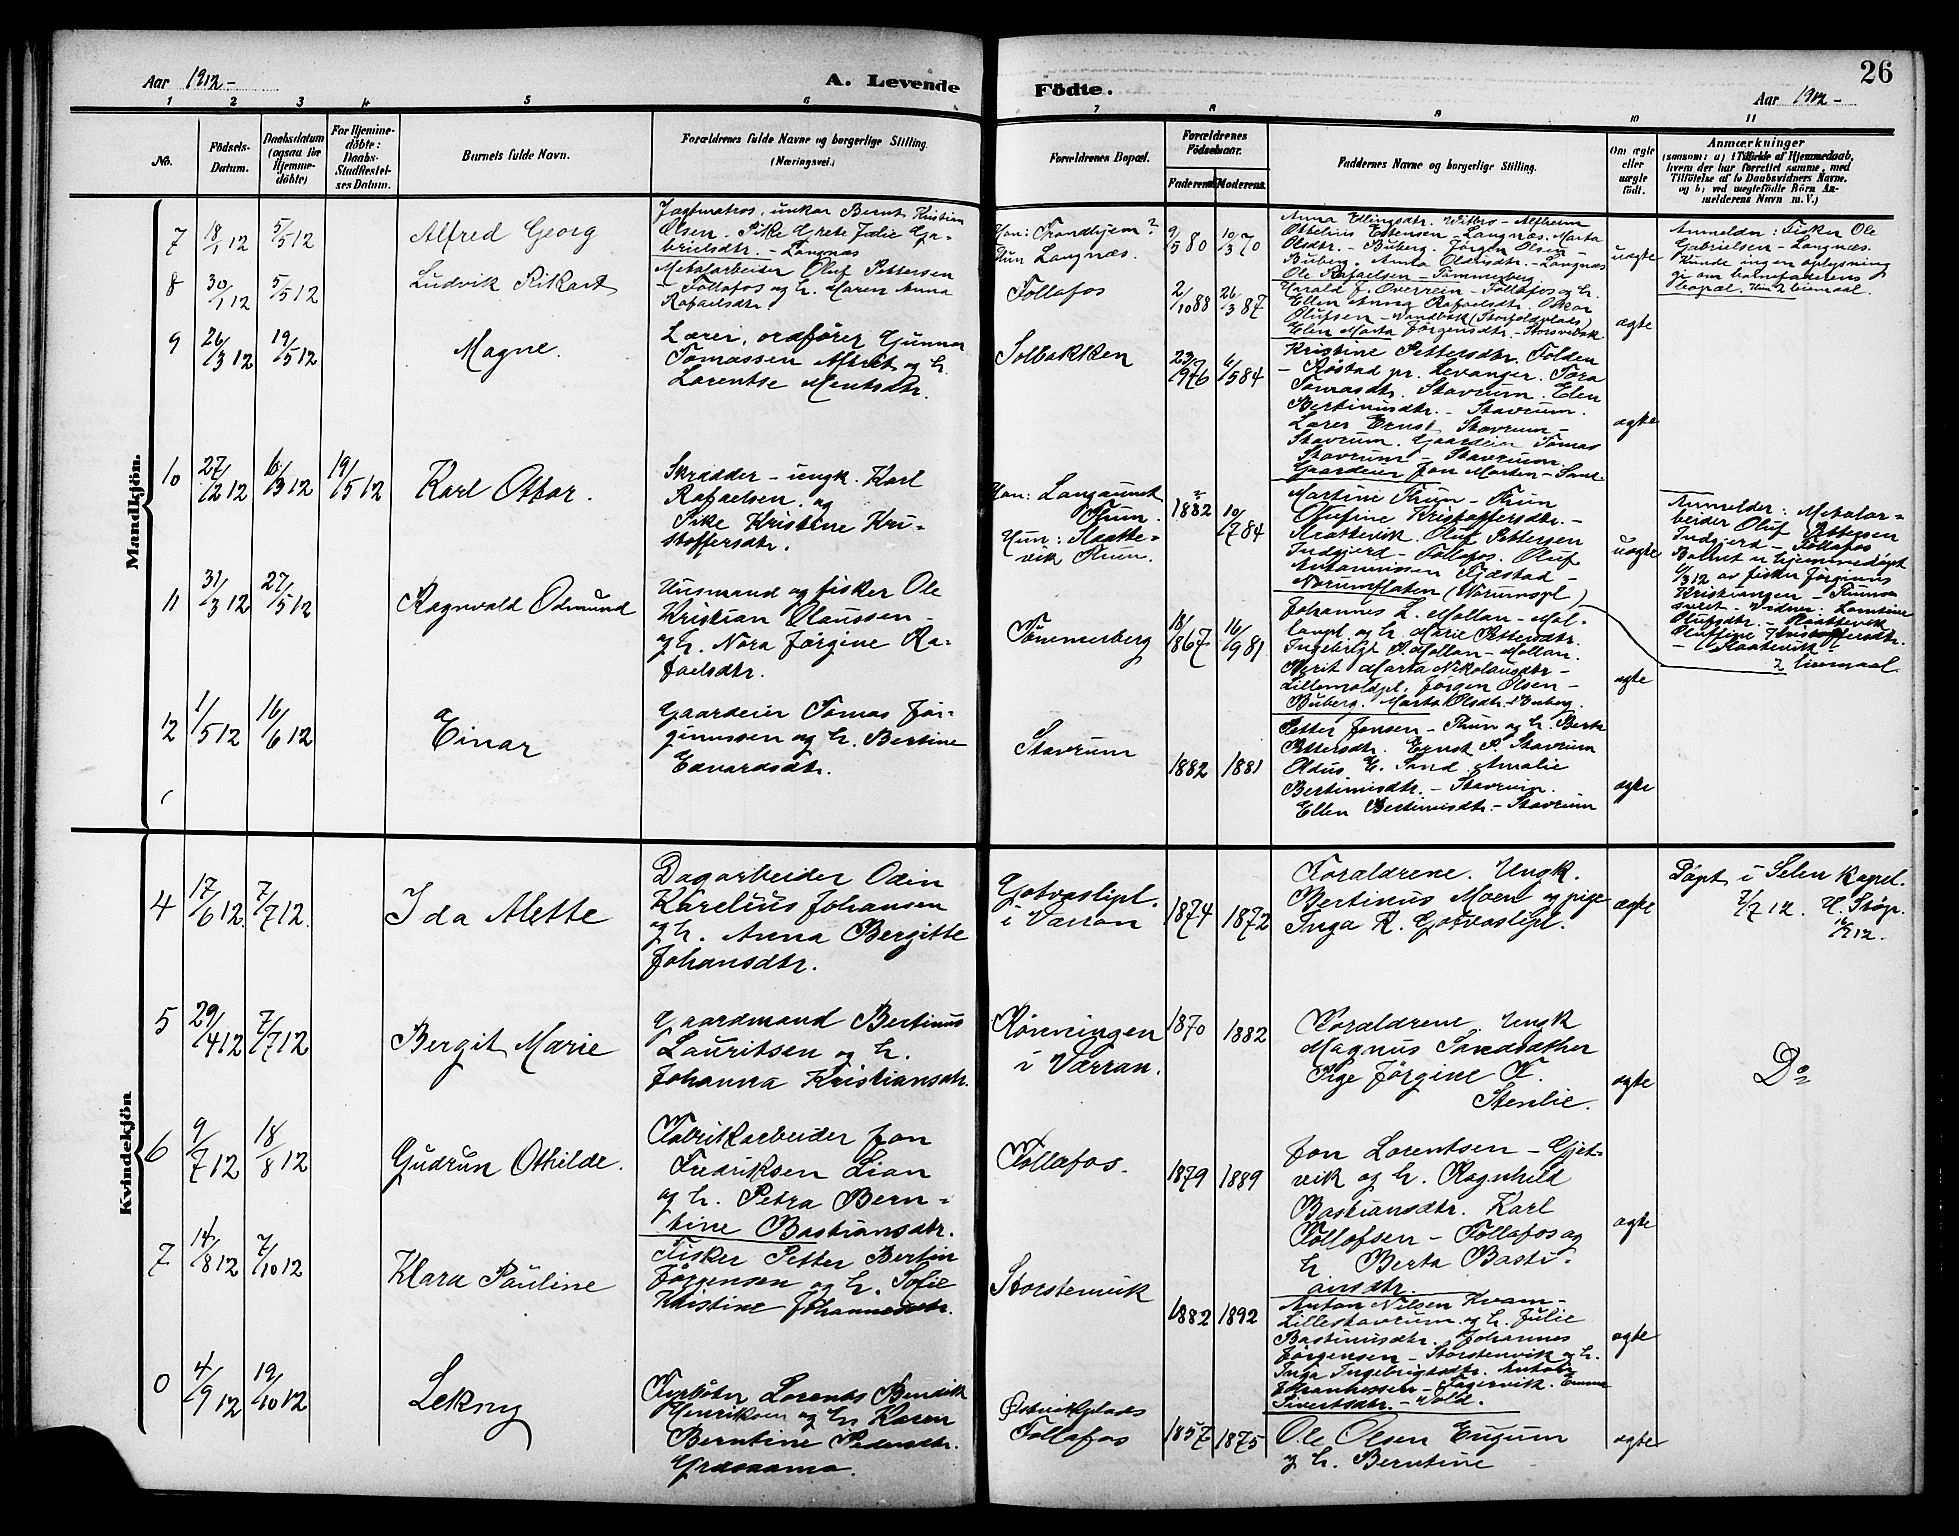 26
Aar 1912 -
A. Levende
Födte.
Aar 1912 -
1 2 3 4 5 6 7 8 9 10 11
No.
Födsels-
Datum.
Daabsdatum
(ogsaa for
Hjemme-
döbte)
For Hjemme-
döbte:
Daabs-
Stadfæstel-
ses Datum.
Barnets fulde Navn.
Forældrenes fulde Navne og borgerlige Stilling
(Næringsvei.)
Forældrenes Bopæl.
Forældrenes
Födselsaar.
Faderens
Moderens.
Faddernes Navne og borgerlige Stilling.
Om ægte
eller
uægte
födt.
Anmærkninger
(saasom: a) i Tilfælde af Hjemmedaab,
hvem der har forrettet samme, med
Tilföielse af to Daabsvidners Navne.
og b) ved uægtefödte Börn An-
melderens Navn m. V.)
Mandkjön.
7
18/1 12
5/5 12
Alfred Georg
Jagtmatros, unkar Bernt Kristian
Olsen. Pike Grete Jodie Ga-
brielsdtr. - Langnæs
Han: Trondhjem?
Hun Langnæs.
9/5 80
10/3 70
Anna Ellingsdtr. Witbro - Alfheim
Othelius Estensen - Langnæs. Marta
Olsdtr. - Buberg. Jørgen Olsen
Buberg. Anna Olausdtr. - Langnæs
Ole Rafaelsen - Tømmerberg
uægte
Anmelder: Fisker Ole
Gabrielsen - Langnæs.
Kunde ingen oplysning
gi om barnefaderens
bopæl. Hun 2 liemaal.
8
30/1 12
5/5 12
Ludvik Rikart
Metalarbeider Oluf Pettersen
- Follafos og h. Maren Anna
Rafaelsdtr.
Follafos
2/10 88
26/3 87
Harald J. Overrein - Follafos og h.
Ellen Anna Rafaelsdtr. Oskar
Olufsen - Vandbak (Storfoldplads)
Elen Marta Jørgensdtr. - Storsvedvik
ægte
9
26/3 12
19/5 12
Magne.
Lærer, ordfører Gunnar
Tomassen Aftret og h.
Lorentse Mentsdtr.
Solbakken
23/9 76
6/5 84
Kristine Pettersdtr. Folden
- Røstad pr. Levanger. Tora
Tomasdtr. Stavrum. Elen
Bertinusdtr. - Stavrum.
Lærer Ernst Stavrum -
Stavrum. Gaardeier Tomas
Stavrum - Stavrum.
Gaardeier Jon Morten - Sand.
ægte
10
27/2 12
6/3 12
19/5 12
Karl Ottar.
Skrædder - ungk. Karl
Rafaelsen. og
Pike Kristine Kri-
stoffersdtr.
Han: Langaunet
Thun.
Hun: Kaatte-
vik Thun.
1882
10/7 84
Martine Thun - Thun
Olufine Kristoffersdtr. -
Kaattevik. Oluf Pettersen
Indgjerd - Follafos. Oluf
Antonissen Fjæstad -
Norumflaten (Norumspl)
uægte
Anmelder: Metalar-
beider Oluf Pettersen
Indgjerd - Follafos
Barnet er hjemmedøpt
6/3 12 av fisker Jørginus
Kristiansen - Thunsø-
øret - Vidner: Lorntine
Olufsdtr. - Kaattevik
Olufine Kristoffersdtr.
- Kaatevik
2 liermaal.
11
31/3 12
27/5 12
Ragnvald Odmund
Husmand og fisker Ole
Kristian Olaussen -
og h. Nora Jørgine Ra-
faelsdtr.
Tømmerberg
18/1867
16/9 81
Johannes L. Mollan - Mol-
lanpl. og h. Marie Pettersdtr.
Ingebrigt P. Mollan - Mollan.
Marit Marta Nikolausdtr -
Lillemoldpl. Jørgen Olsen -
Buberg. Marta Olsdtr - Buberg.
ægte
12
1/5 12
16/6 12
Einar
Gaardeier Tomas Jør-
ginussen og h. Bertine
Edvardsdtr.
Stavrum
1882
1881
Petter Jonsen - Thun og h. Berta
Pettersdtr. Ernst P. Stavrum
Oldus E. Sand. Amalie
Bertinusdtr. - Stavrum.
Ellen Bertinusdtr. - Stavrum
ægte
Kvindekjön
4
17/6 12.
7/7 12.
Ida Alette
Dagarbeider Odin
Karelius Johansen
og h. Anna Bergitte
Johansdtr.
Gotvaslipl.
i Værran
1874
1872
Forældrene. Ungk.
Bertinus Moen og pige
Inga K. Gotvaslipl.
ægte
Døpt i Selen Kapel.
7/7 12. H. Støp.
5
29/4 12
7/7 12
Bergit Marie
Gaardmand Bertinus
Lauritsen og h.
Johanna Kristiansdtr.
Rønningen
i Værran.
1870
1882
Forældrene. Ungk
Magnus Sandsæther
Pige Jørgine F.
Stenlie.
ægte
Do
6
9/7 12
18/8 12
Gudrun Othilde.
Fabrikarbeider Jon
Fredriksen Lian
og h. Petra Bern-
tine Bastiansdtr.
Follafos.
1879
1889
Jon Lorentsen - Gjet-
vik og h. Ragnhild
Bastiansdtr. Karl
Follofsen - Follafos og
h. Berta Basti-
ansdtr.
ægte
7
14/8 12
7/10 12
Klara Pauline
Fisker Petter Bertin
Jørgensen og h. Sofie
Kristine Johannesdtr.
Storstenvik
1882
1892
Anton Nilsen Kvam -
Lillestavrum og h. Julie
Bastinusdtr. Johannes
Jørgensen - Storstenvik og h.
Inga Ingebrigtsdtr. Anton
Johannessen - Fagervik. Emma
Sivertsdtr. - Vold.
ægte
0
4/9 12
19/10 12
Lekny
Fyrbøter Lorents Bendik
Henriksen og h. Karen
Berntine Pedersdtr.
Græsaamo.
Østvikplads
Follafos
1857
1875
Ole Olsen Eugum
og h. Berntine
ægte